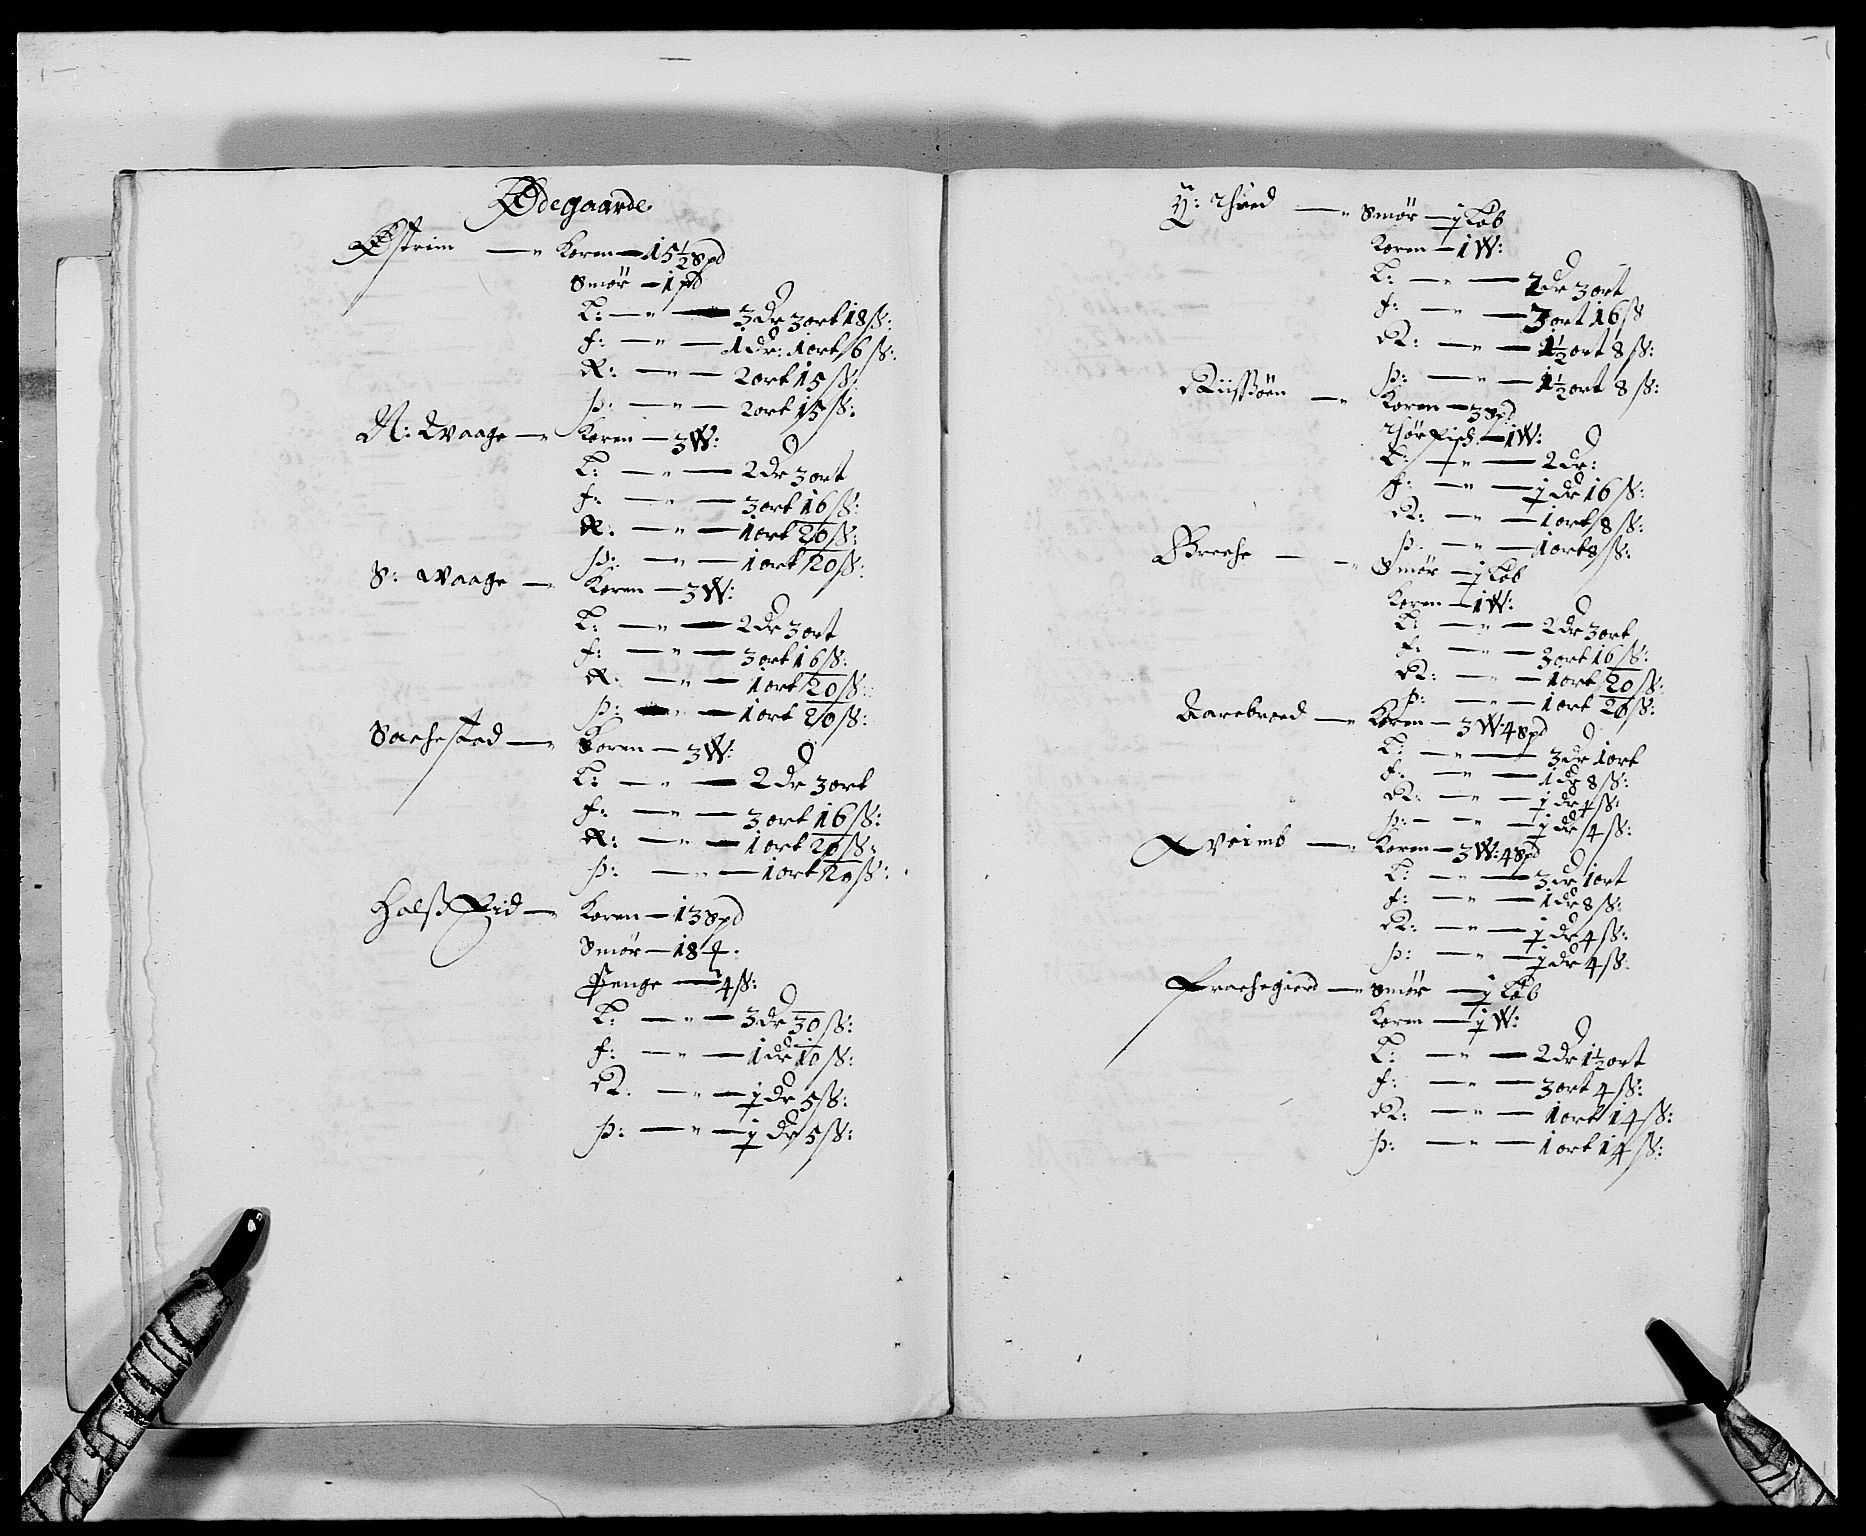 Ødegaarde
Østrim — " Koren — 15½ Spd
Smør — 1 pd
L: — " — 3 dr 3 ort 18 ß:
f: — " — 1 dr: 1 ort 6 ß:
R: — " — 2 ort 15 ß:
þ: — " — 2 ort 15 ß:
N: Waage — " Koren — 3 W:
L: — " — 2 dr 3 ort
f: — " — 3 ort 16 ß:
R: — " — 1 ort 20 ß:
þ: — " — 1 ort 20 ß:
S: Waage — " Koren — 3 W:
L: — " — 2 dr 3 ort
f: — " — 3 ort 16 ß:
R: — " — 1 ort 20 ß:
þ: — " — 1 ort 20 ß:
Sachested — " Koren — 3 W:
L: — " — 2 dr 3 ort
f: — " — 3 ort 16 ß:
R: — " — 1 ort 20 ß:
þ: — " — 1 ort 20 ß:
Halß Eid — " Koren — 13 Spd
Smør — 18
Penge — 4 ß:
L: — " — 3 dr 30 ß:
f: — " — 1 dr 10 ß:
R: — " — ½ dr 5 ß:
þ: — " — ½ dr 5 ß:
Y: — " Smør — ½ Løb
Koren — 1 W:
L: — " — 2 dr 3 ort
f: — " — 3 ort 16 ß
R: — " — 1½ ort 8 ß:
þ: — " — 1½ ort 8 ß:
Riisßøen — " Koren — 3 Spd
Tør fisch — 1 W:
L: — " — 2 dr:
f: — " — ½ dr 16 ß:
R: — " — 1 ort 8 ß:
þ: — " — 1 ort 8 ß:
Breche — " Smør — ½ Løb
Koren — 1 W:
L: — " — 2 dr 3 ort
f: — " — 3 ort 16 ß:
R: — " — 1 ort 20 ß:
þ: — " — 1 ort 20 ß:
Aarebroed — " Koren — 3 W: 4 Spd
L: — " — 3 dr 1 ort
f: — " — 1 dr 8 ß:
R: — " — ½ dr 4 ß:
þ: — " — ½ dr 4 ß:
Qveimb — " Koren — 3 W: 4 Spd
L: — " — 3 dr 1 ort
f: — " — 1 dr 8 ß:
R: — " — ½ dr 4 ß:
þ: — " — ½ dr 4 ß:
Frachegierd — Smør — ½ Løb
Koren — ½ W:
L: — " — 2 dr 1½ ort
f: — " — 3 ort 4 ß:
R: — " — 1 ort 14 ß:
þ: — " — 1 ort 14 ß: